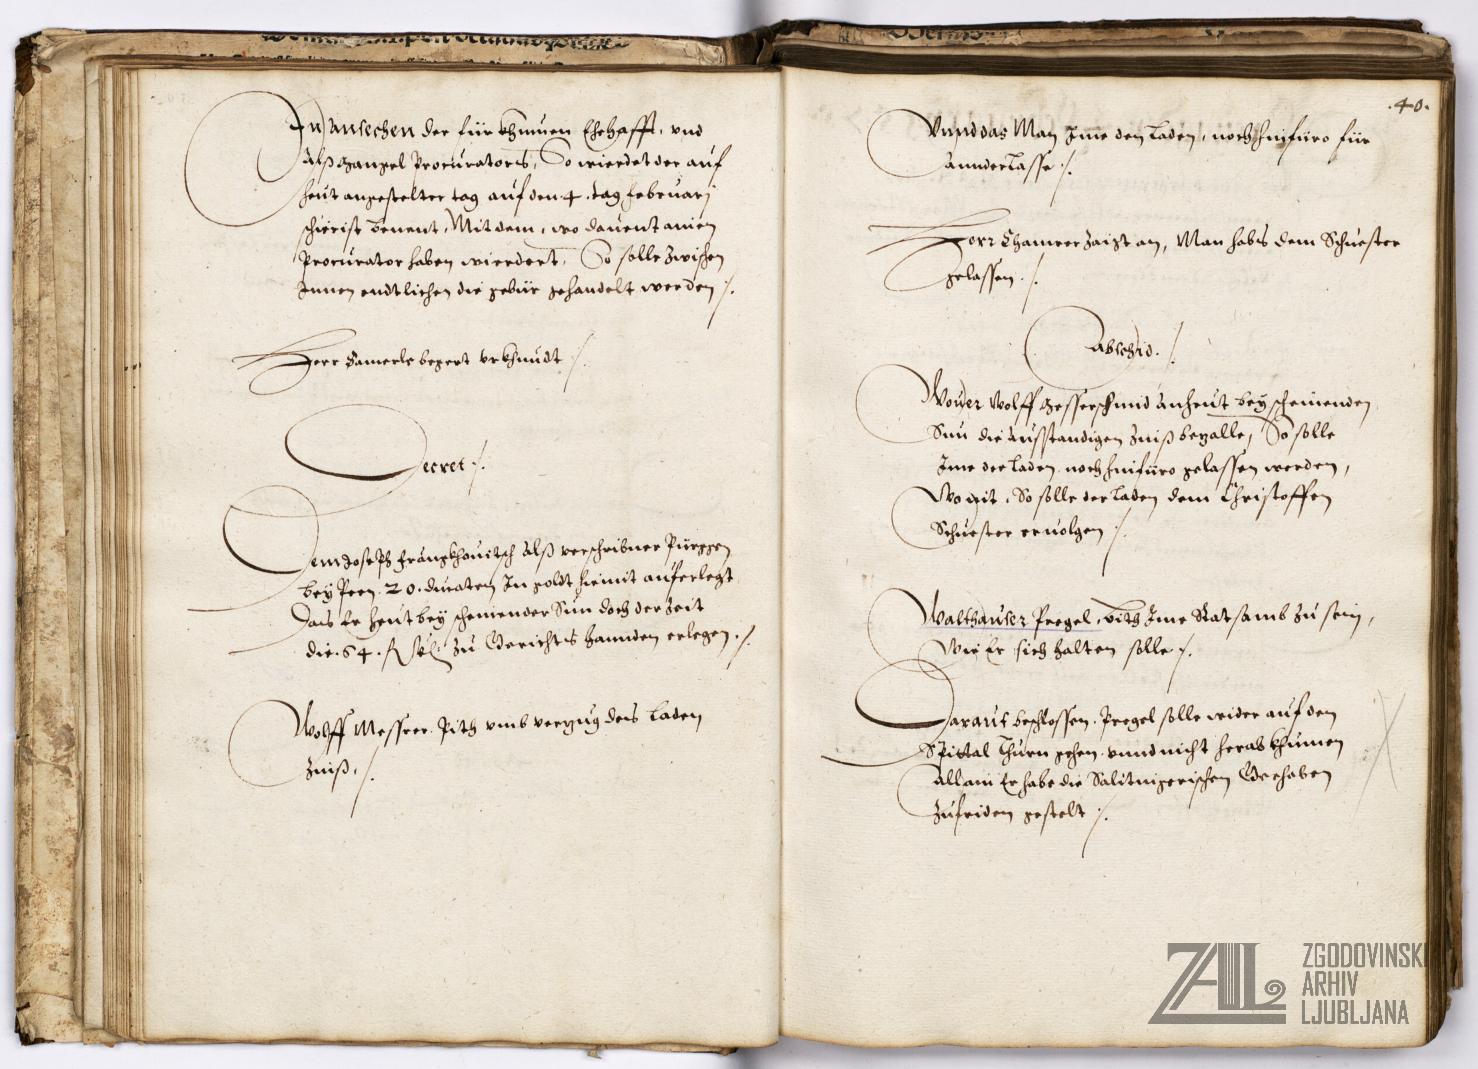 In ansechen der fürkhumen Ehehafft, und
Alß mangel Procurators, So wierdet der auf
heut angestelter tag auf den 4. tag februarj
schierist benent, Mit dem, wo dauent ainen
Procurator haben wierdert, So solle zwischen
Innen endtlichen die gebür gehandelt werden /.
Herr Samerle begert urkhundt /.
Decret /.
Dem Joseph frankhouitsch Alß verschribner Pürggen
bey Peen .20. ducaten In goldt hiemit auferlegt
Das Er heut bey scheinender Sun doch der Zeit
die .64. zu Gerichts hannden erlegen /.
Wolff Messrer Pith umb verzug des Laden
Zinß, /.
.40.
Vnnd das Man Ime den Laden, noch hinfüro für
annder Lasse /.
Herr Chamrer zaigt an, Man habs dem Schuester
gelassen. /.
Abschid. /.
Wouer Wolff Messerschmid an heut bey scheinenden
Sun die Ausstandigen Zinß bezalle, So solle
Ime der Laden noch hinfüro gelassen werden,
Wo nit, So solle der Laden dem Christoffen
Schuester eruolgen /.
Walthauser Pregel, pith Ime Ratsamb zu sein,
Wie Er sich halten solle /.
Darauf beschlossen, Pregel solle wider auf den
Spittal Thurn gehen unnd nicht herab khumen
Allain Er habe die Salitnigerischen Gerhaben
Zufriden gestelt /.
ZAL
ZGODOVINSKI
ARHIV
LJUBLJANA